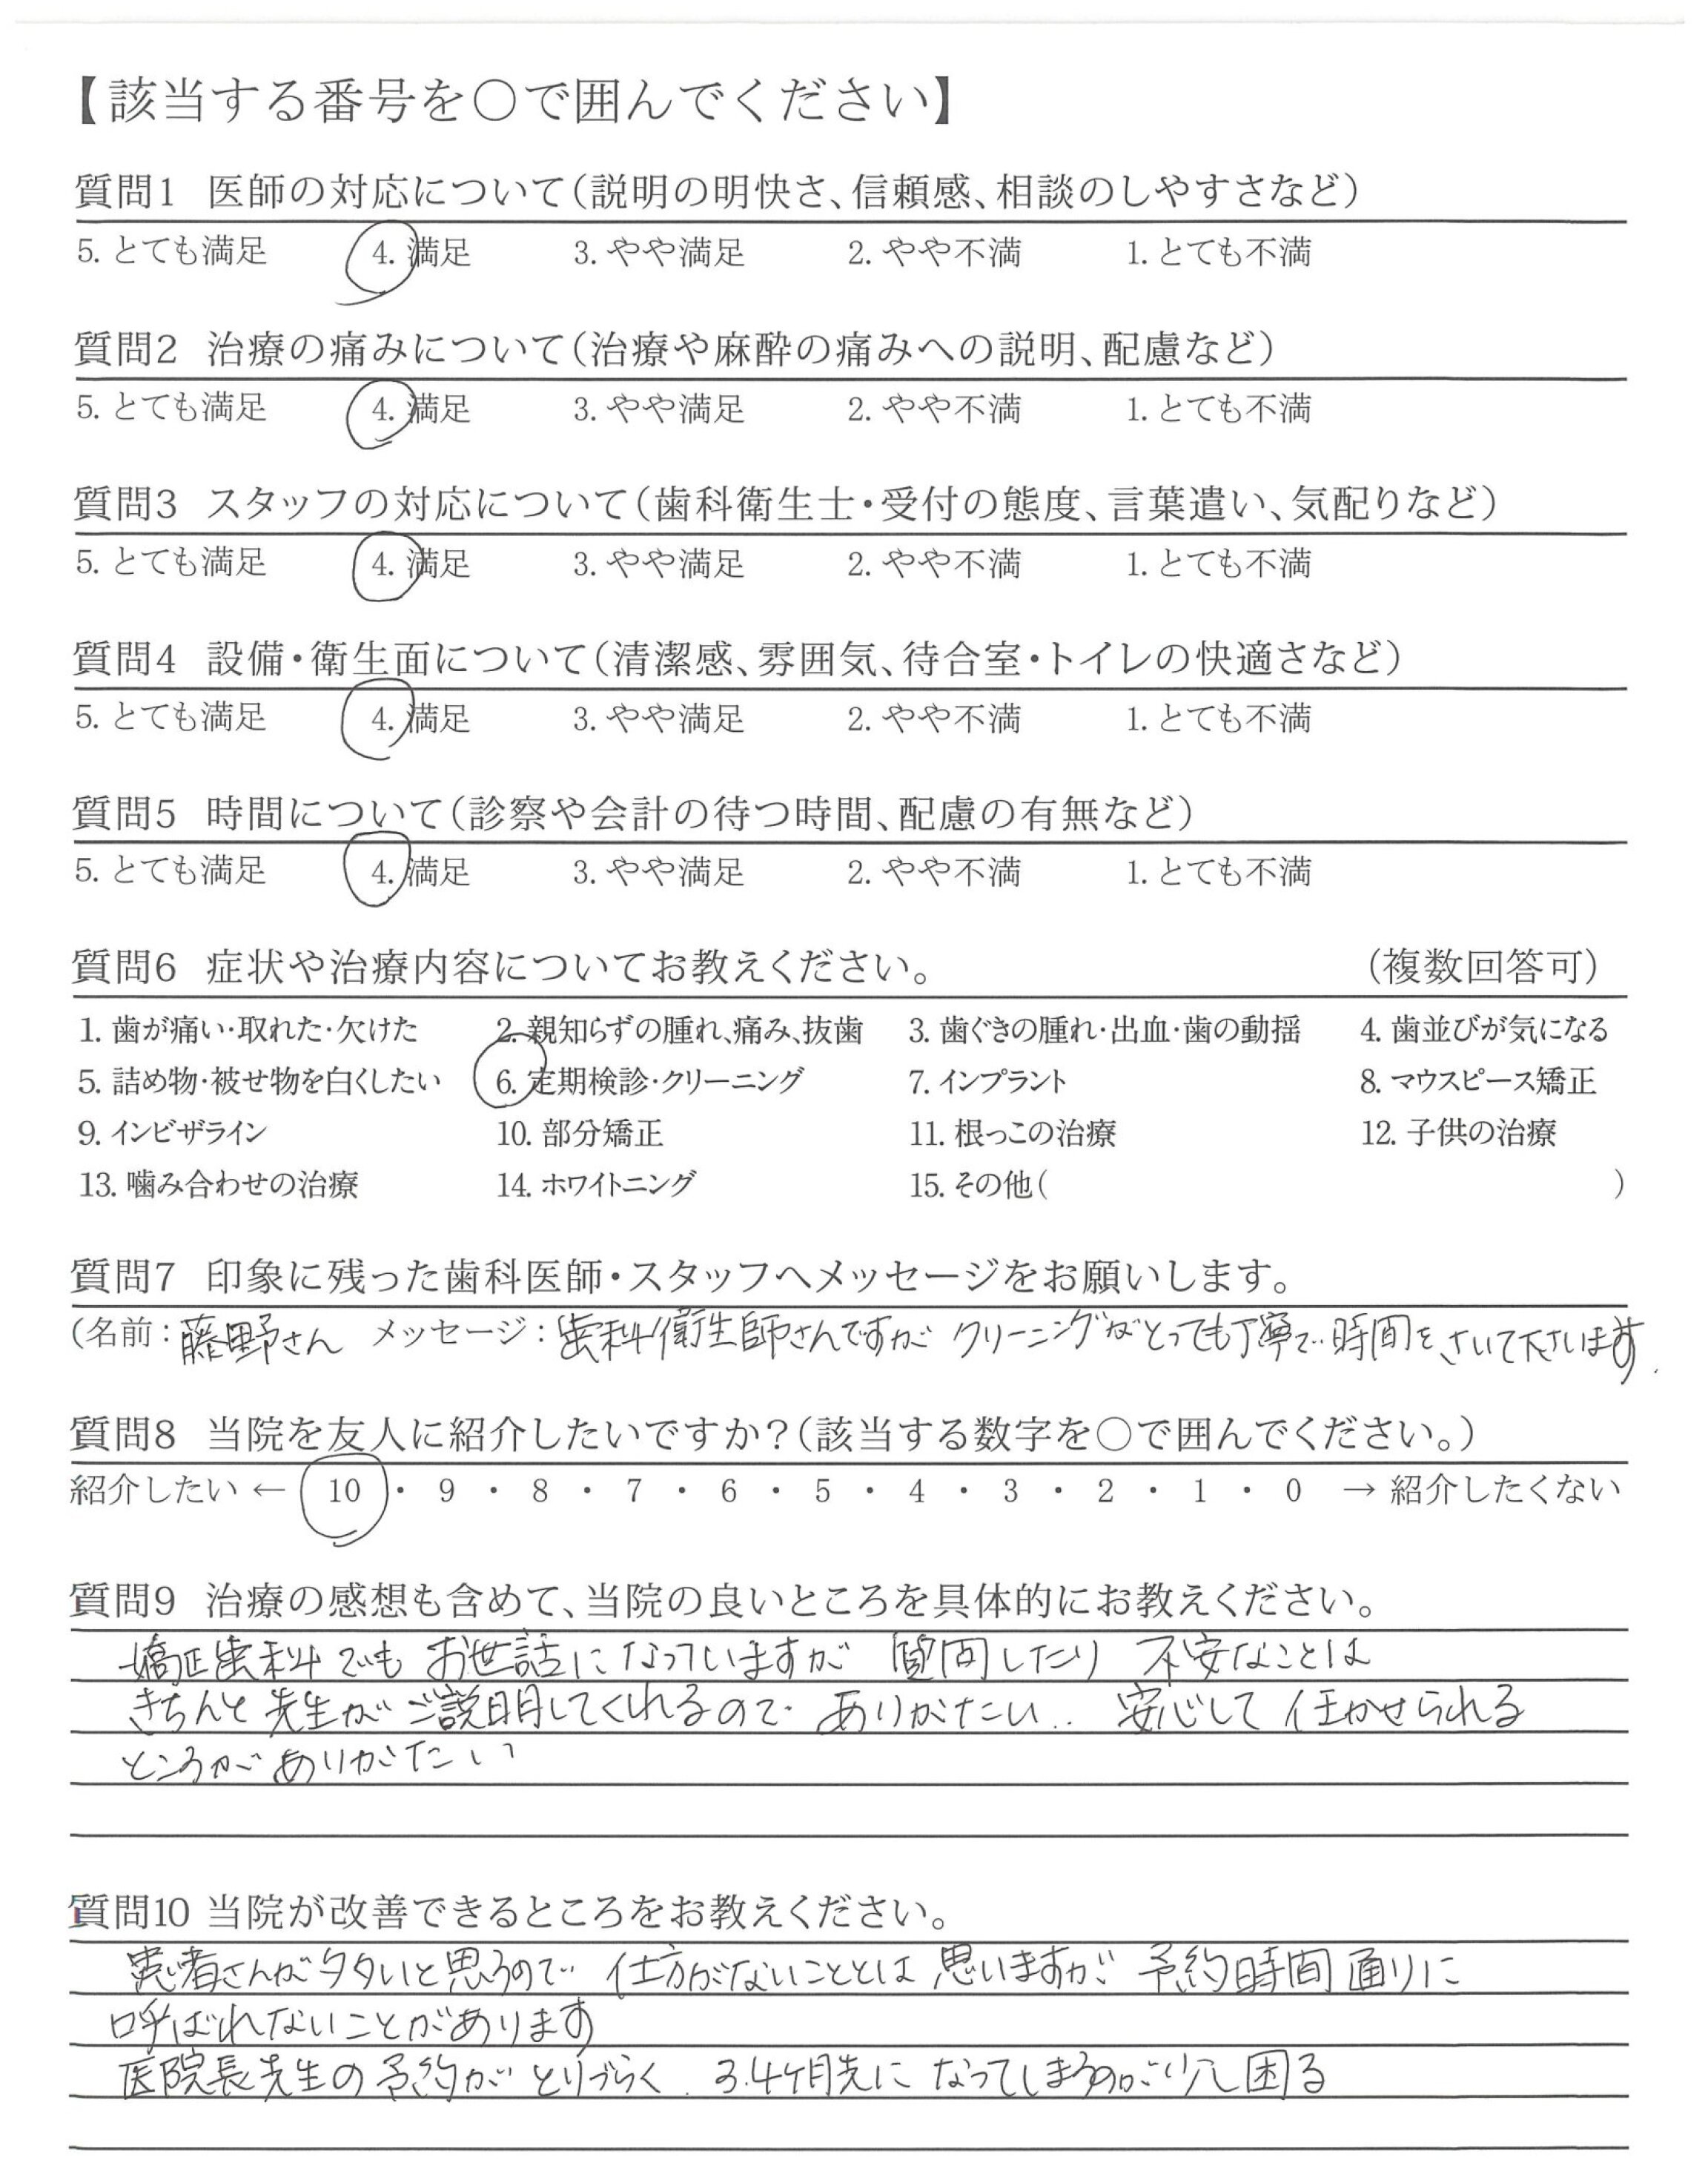 【該当する番号を○で囲んでください】
質問1 医師の対応について(説明の明快さ、信頼感、相談のしやすさなど)
5. とても満足 4. 満足 3. やや満足 2. やや不満 1. とても不満
質問2 治療の痛みについて(治療や麻酔の痛みへの説明、配慮など)
5. とても満足 4. 満足 3. やや満足 2. やや不満 1. とても不満
質問3 スタッフの対応について(歯科衛生士・受付の態度、言葉遣い、気配りなど)
5. とても満足 4. 満足 3. やや満足 2. やや不満 1. とても不満
質問4 設備・衛生面について(清潔感、雰囲気、待合室・トイレの快適さなど)
5. とても満足 4. 満足 3. やや満足 2. やや不満 1. とても不満
質問5 時間について(診察や会計の待つ時間、配慮の有無など)
5. とても満足 4. 満足 3. やや満足 2. やや不満 1. とても不満
質問6 症状や治療内容についてお教えください。 (複数回答可)
1. 歯が痛い・取れた・欠けた 2. 親知らずの腫れ、痛み、抜歯 3. 歯ぐきの腫れ・出血・歯の動揺 4. 歯並びが気になる
5. 詰め物・被せ物を白くしたい 6. 定期検診・クリーニング 7. インプラント 8. マウスピース矯正
9. インビザライン 10. 部分矯正 11. 根っこの治療 12. 子供の治療
13. 噛み合わせの治療 14. ホワイトニング 15. その他( )
質問7 印象に残った歯科医師・スタッフへメッセージをお願いします。
(名前:藤野さん メッセージ:歯科衛生師さんですが クリーニングがとっても丁寧で 時間をさいて下さいます.
質問8 当院を友人に紹介したいですか?(該当する数字を○で囲んでください。)
紹介したい ← 10 ・ 9 ・ 8 ・ 7 ・ 6 ・ 5 ・ 4 ・ 3 ・ 2 ・ 1 ・ 0 → 紹介したくない
質問9 治療の感想も含めて、当院の良いところを具体的にお教えください。
矯正歯科でも お世話になっていますが 質問したり 不安なことは
きちんと先生がご説明してくれるので ありがたい.. 安心して任かせられる
ところがありがたい
質問10 当院が改善できるところをお教えください。
患者さんが多いと思うので 仕方がないこととは思いますが 予約時間通りに
呼ばれないことがあります
医院長先生の予約がとりづらく. 3.4ケ月先になってしまうのが少し困る